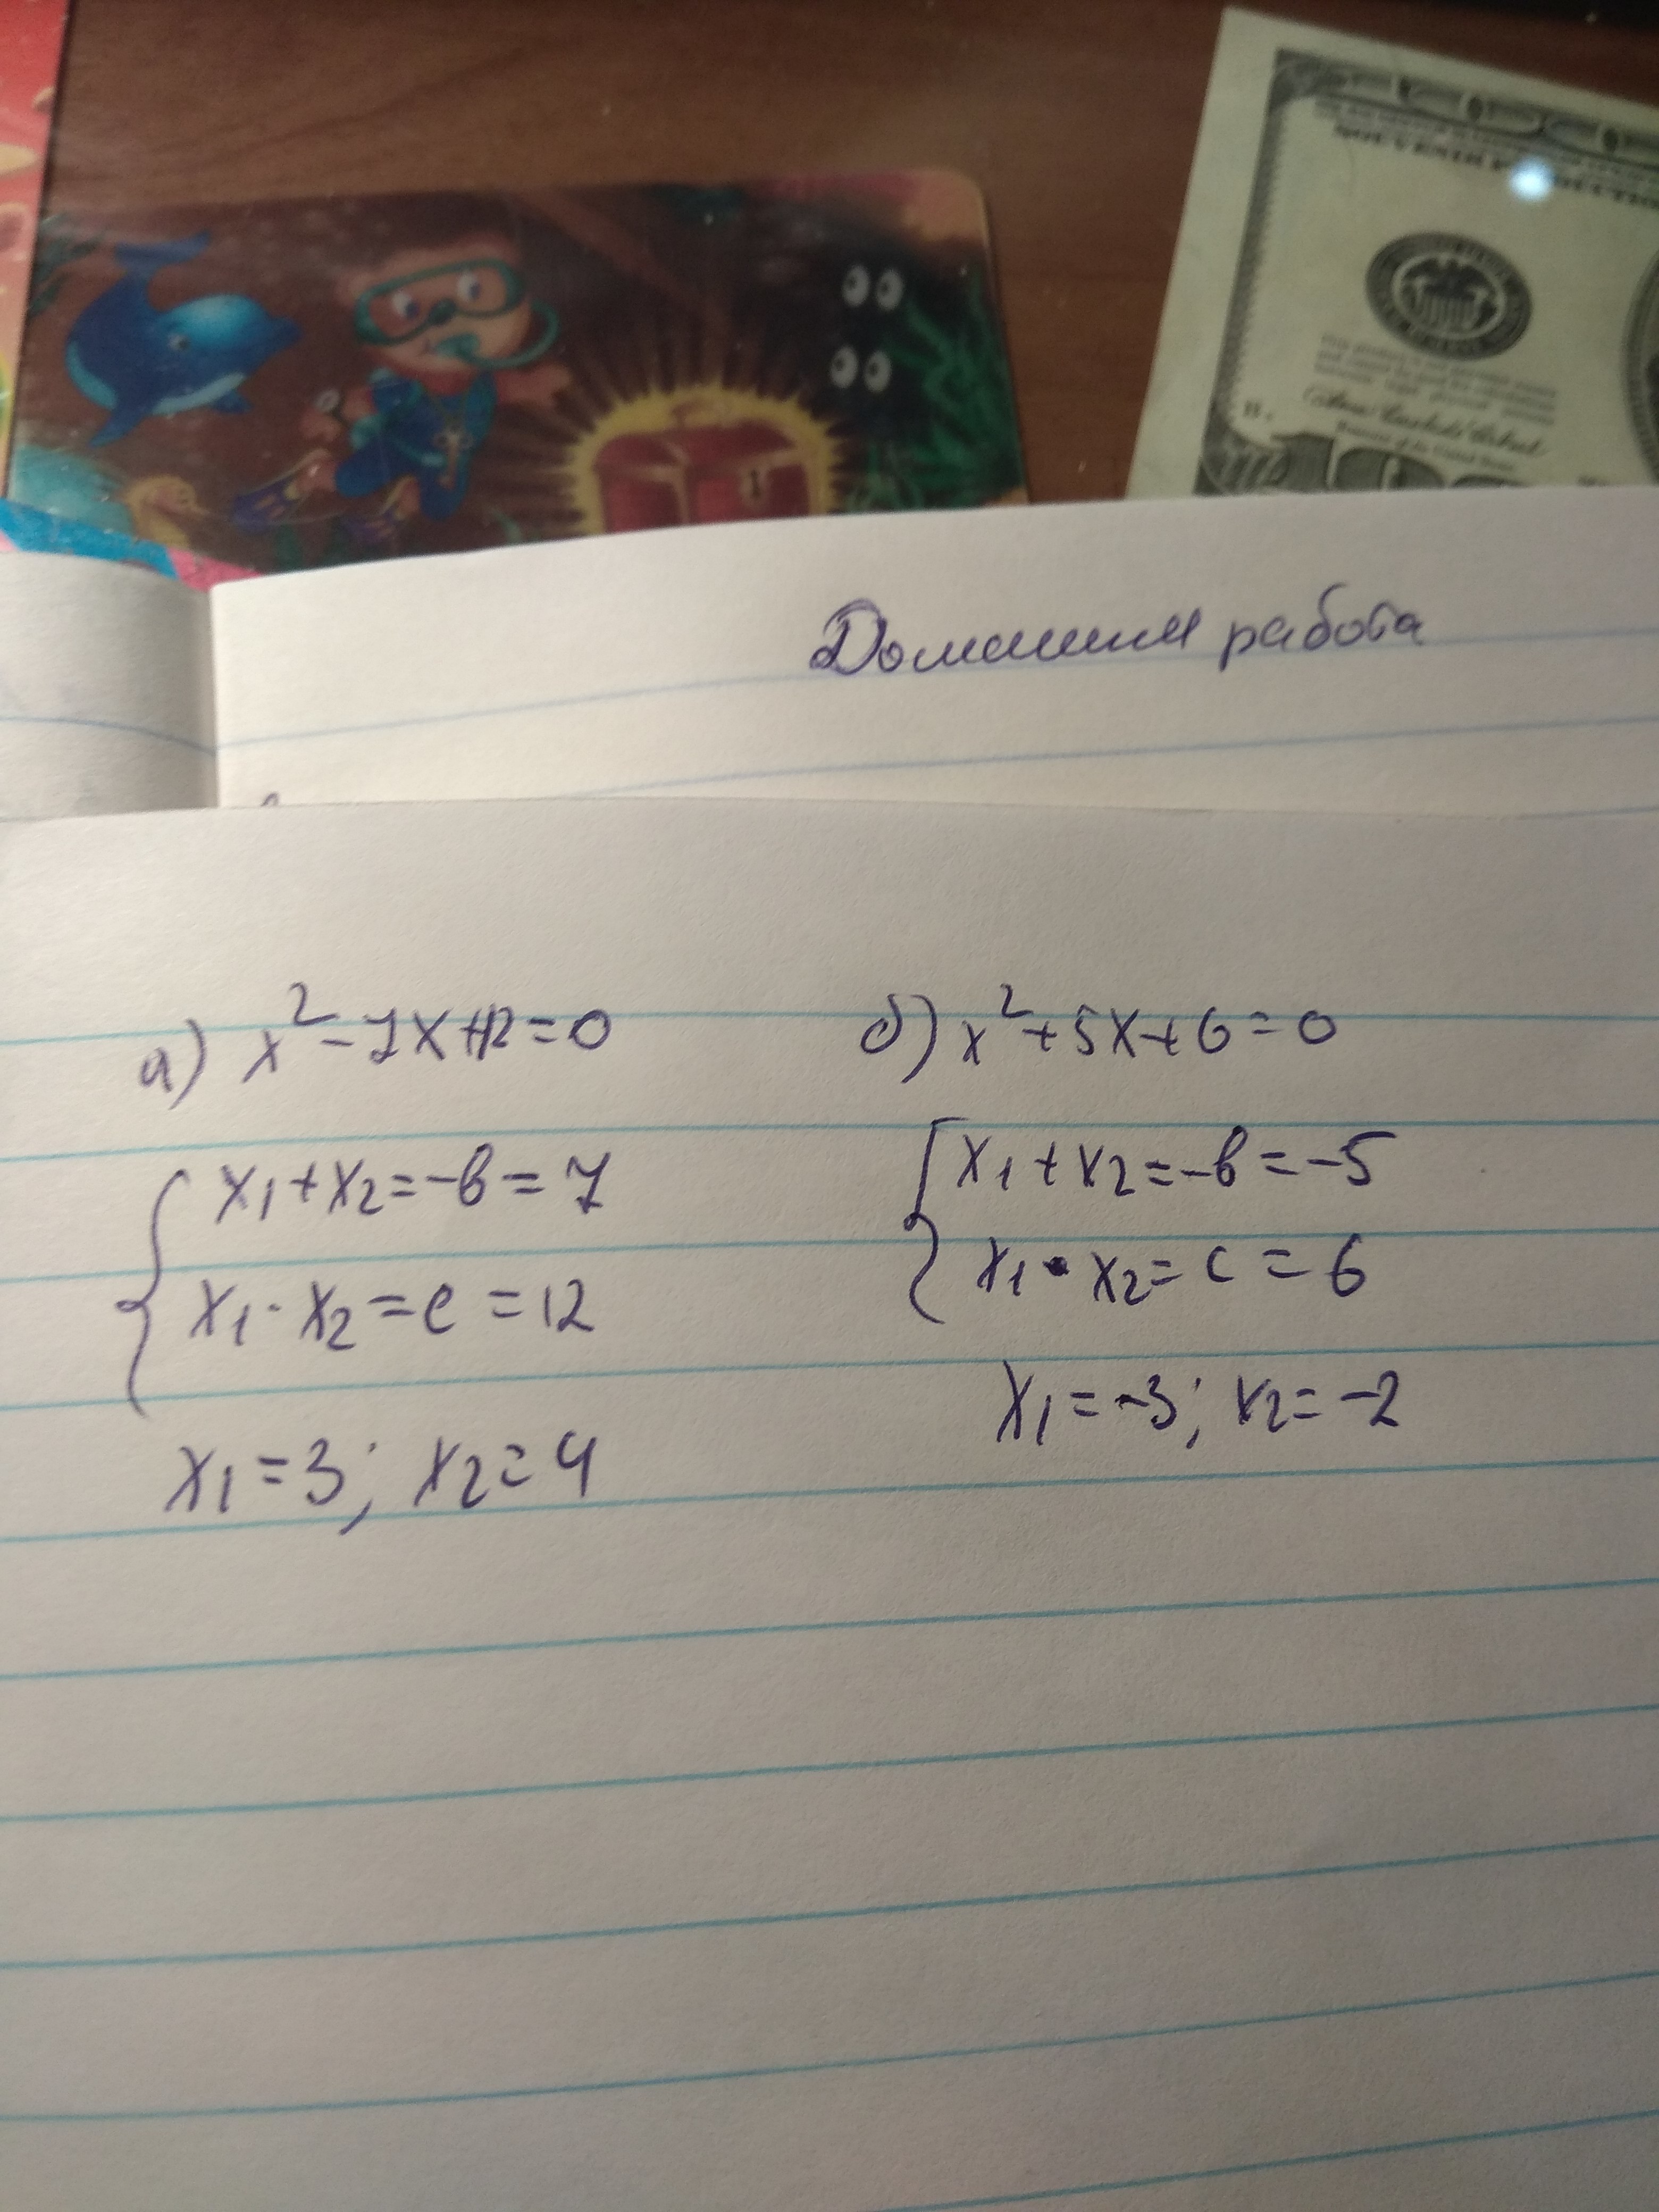 Домашняя работа
а) x² - 7x + 12 = 0
{ x₁ + x₂ = -b = 7
x₁ · x₂ = c = 12
x₁ = 3; x₂ = 4
б) x² + 5x + 6 = 0
{ x₁ + x₂ = -b = -5
x₁ · x₂ = c = 6
x₁ = -3; x₂ = -2